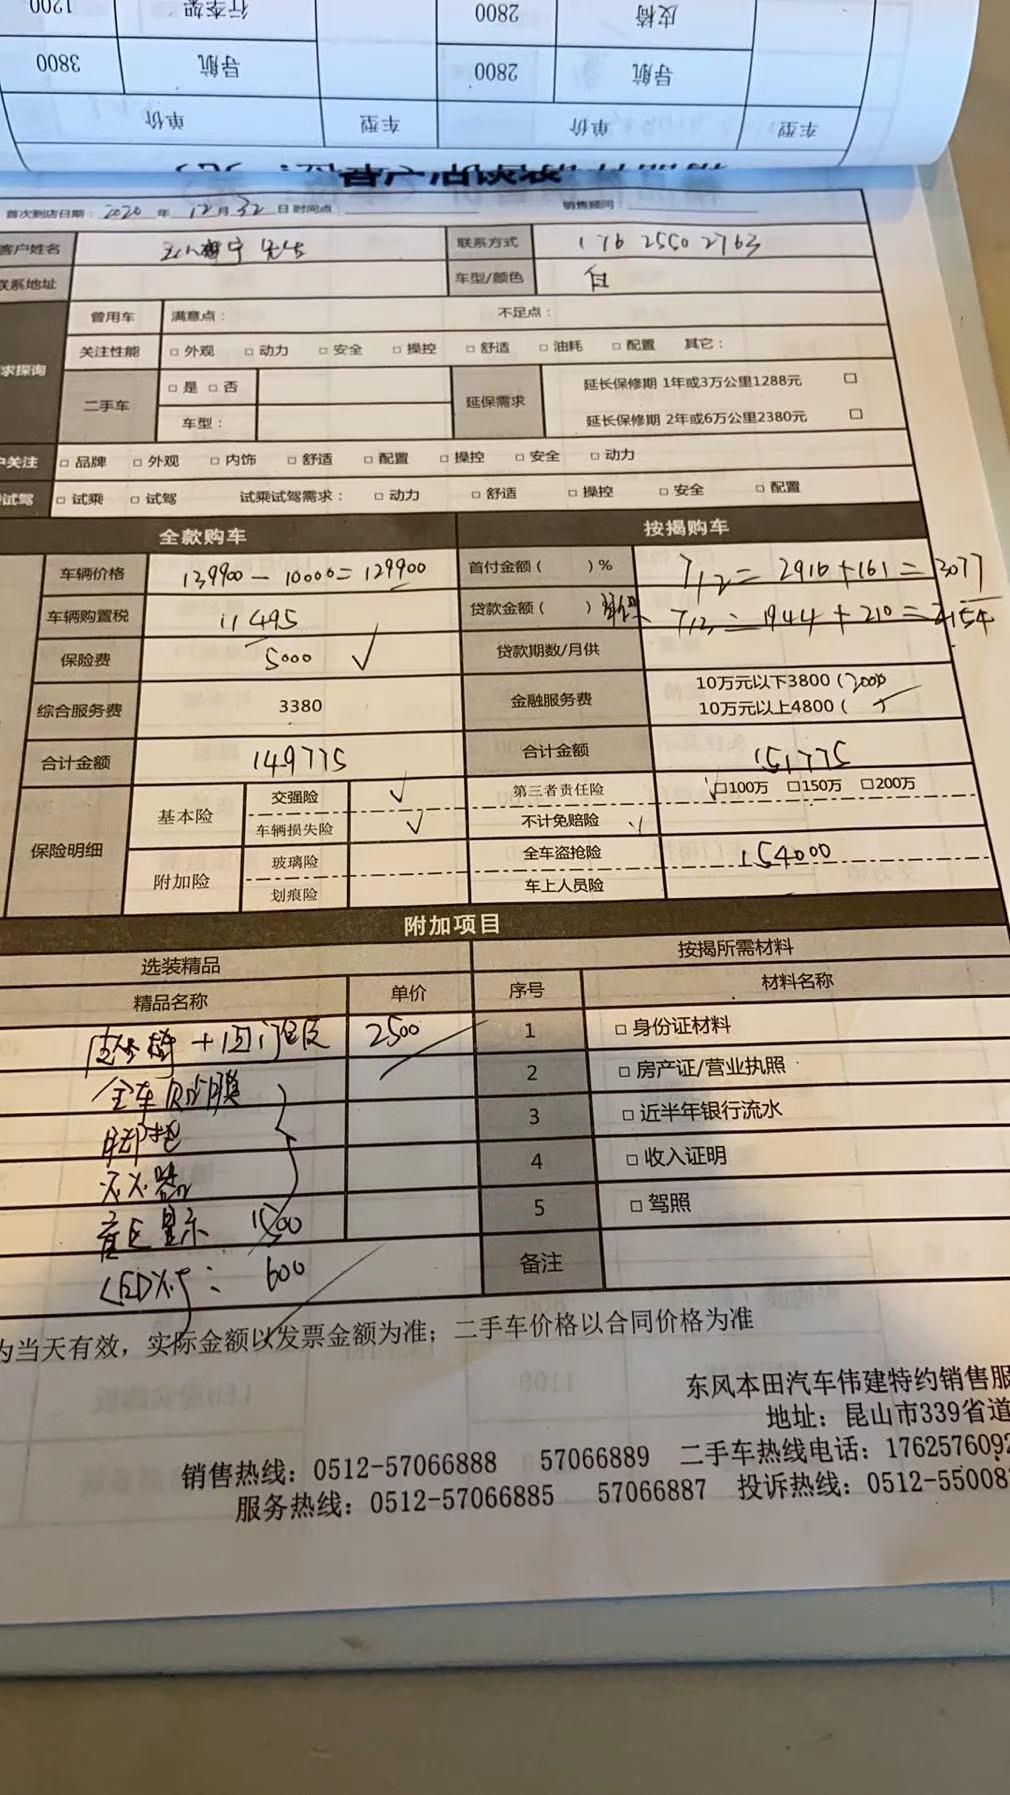 1200 行李架 2800 皮椅
3800 导航 2800 导航
单价 车型 单价 车型
首次到店日期：2020 年 12月 32 日 时间点： 销售顾问
客户姓名 先生 联系方式 176 2550 2763
联系地址 车型/颜色 白
求探询 曾用车 满意点： 不足点：
关注性能 □ 外观 □ 动力 □ 安全 □ 操控 □ 舒适 □ 油耗 □ 配置 其它：
二手车 □ 是 □ 否 延保需求 延长保修期 1年或3万公里1288元 □
车型： 延长保修期 2年或6万公里2380元 □
户关注 □ 品牌 □ 外观 □ 内饰 □ 舒适 □ 配置 □ 操控 □ 安全 □ 动力
试驾 □ 试乘 □ 试驾 试乘试驾需求： □ 动力 □ 舒适 □ 操控 □ 安全 □ 配置
全款购车 按揭购车
车辆价格 139900 - 10000 = 129900 首付金额（ ）% 712 = 2916 + 161 = 3077
车辆购置税 11495 贷款金额（ ） 713 = 1944 + 210 = 2154
保险费 5000 ✓ 贷款期数/月供
综合服务费 3380 金融服务费 10万元以下3800（2000
10万元以上4800（
合计金额 149775 合计金额 151775
保险明细 基本险 交强险 ✓ 第三者责任险 ✓ □100万 □150万 □200万
车辆损失险 ✓ 不计免赔险 ✓
附加险 玻璃险 全车盗抢险 154000
划痕险 车上人员险
附加项目
选装精品 按揭所需材料
精品名称 单价 序号 材料名称
皮座椅 + 四门包皮 2500 1 □ 身份证材料
全车贴膜 2 □ 房产证/营业执照
脚垫 3 □ 近半年银行流水
灭火器 4 □ 收入证明
显示 1500 5 □ 驾照
LED灯： 600 备注
为当天有效，实际金额以发票金额为准；二手车价格以合同价格为准
东风本田汽车伟建特约销售服
地址：昆山市339省道
销售热线：0512-57066888 57066889 二手车热线电话：1762576092
服务热线：0512-57066885 57066887 投诉热线：0512-55008